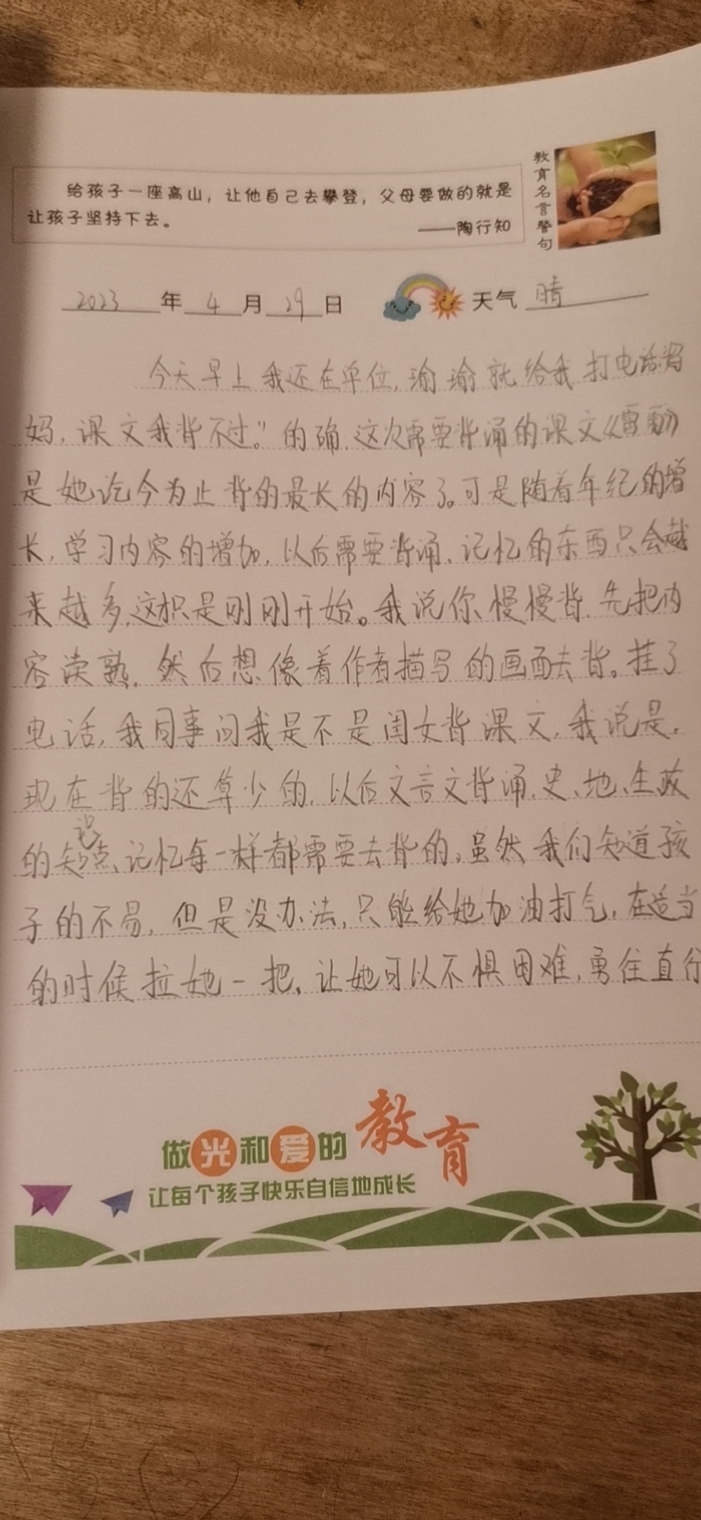 给孩子一座高山，让他自己去攀登，父母要做的就是
让孩子坚持下去。
——陶行知
教育名言警句
2023年4月29日 天气 晴
今天早上我还在单位，瑜瑜就给我打电话妈
妈，课文我背不过。”的确，这次需要背诵的课文《
是她讫今为止背的最长的内容了。可是随着年纪的增
长，学习内容的增加，以后需要背诵、记忆的东西只会越
来越多，这只是刚刚开始。我说你慢慢背，先把内
容读熟，然后想像着作者描写的画面去背。挂了
电话，我同事问我是不是闺女背课文，我说是。
现在背的还算少的，以后文言文背诵，史、地、生政
的知识点、记忆每一样都需要去背的。虽然我们知道孩
子的不易，但是没办法，只能给她加油打气，在适当
的时候拉她一把，让她可以不惧困难，勇往直行
做光和爱的教育
让每个孩子快乐自信地成长